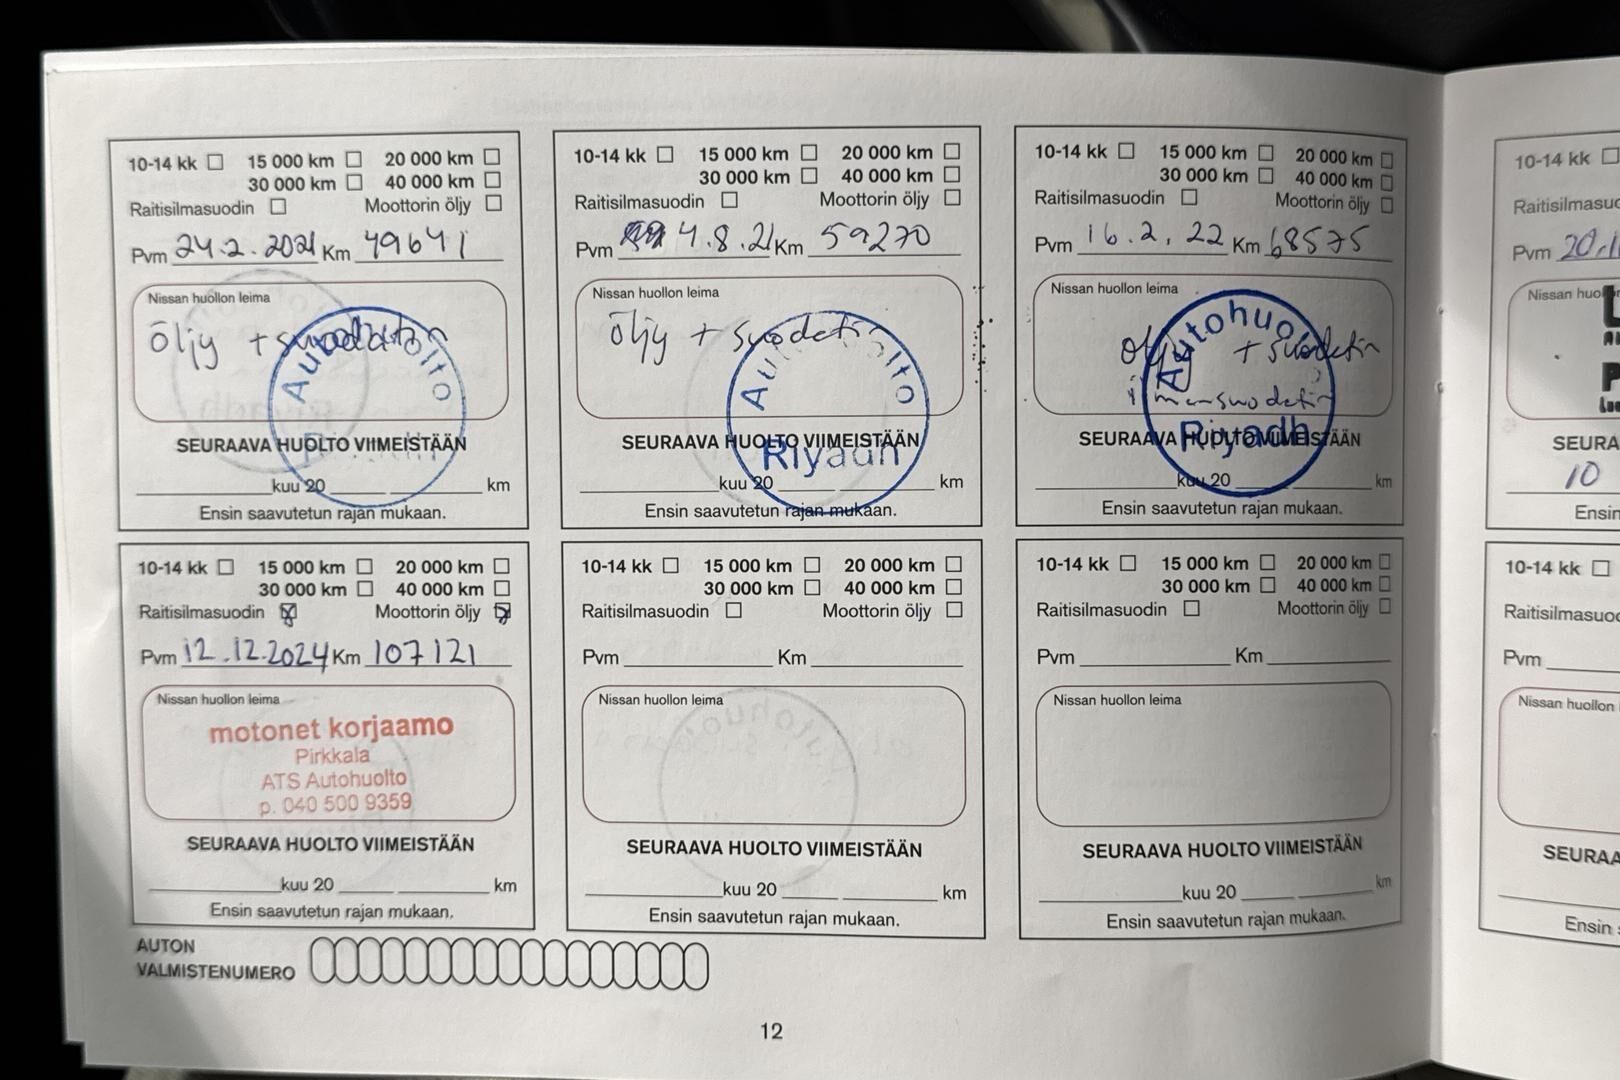 10-14 kk 15 000 km 20 000 km
30 000 km 40 000 km
Raitisilmasuodin Moottorin öljy
Pvm 24.2.2021 Km 49641
Nissan huollon leima
öljy + suodatin
Autohuolto
SEURAAVA HUOLTO VIIMEISTÄÄN
kuu 20 km
Ensin saavutetun rajan mukaan.
10-14 kk 15 000 km 20 000 km
30 000 km 40 000 km
Raitisilmasuodin Moottorin öljy
Pvm 4.8.21 Km 59270
Nissan huollon leima
öljy + suodatin
Autohuolto
Riyadh
SEURAAVA HUOLTO VIIMEISTÄÄN
kuu 20 km
Ensin saavutetun rajan mukaan.
10-14 kk 15 000 km 20 000 km
30 000 km 40 000 km
Raitisilmasuodin Moottorin öljy
Pvm 16.2.22 Km 68575
Nissan huollon leima
öljy + suodatin
ilmansuodatin
Autohuolto
Riyadh
SEURAAVA HUOLTO VIIMEISTÄÄN
kuu 20 km
Ensin saavutetun rajan mukaan.
10-14 kk
Pvm 20.1
SEURA
10
Ensin
10-14 kk 15 000 km 20 000 km
30 000 km 40 000 km
Raitisilmasuodin Moottorin öljy
Pvm 12.12.2024 Km 107121
Nissan huollon leima
motonet korjaamo
Pirkkala
ATS Autohuolto
p. 040 500 9359
SEURAAVA HUOLTO VIIMEISTÄÄN
kuu 20 km
Ensin saavutetun rajan mukaan.
10-14 kk 15 000 km 20 000 km
30 000 km 40 000 km
Raitisilmasuodin Moottorin öljy
Pvm Km
Nissan huollon leima
SEURAAVA HUOLTO VIIMEISTÄÄN
kuu 20 km
Ensin saavutetun rajan mukaan.
10-14 kk 15 000 km 20 000 km
30 000 km 40 000 km
Raitisilmasuodin Moottorin öljy
Pvm Km
Nissan huollon leima
SEURAAVA HUOLTO VIIMEISTÄÄN
kuu 20 km
Ensin saavutetun rajan mukaan.
10-14 kk
Raitisilmasuo
Pvm
Nissan huollon
SEURAA
Ensin
AUTON
VALMISTENUMERO
12